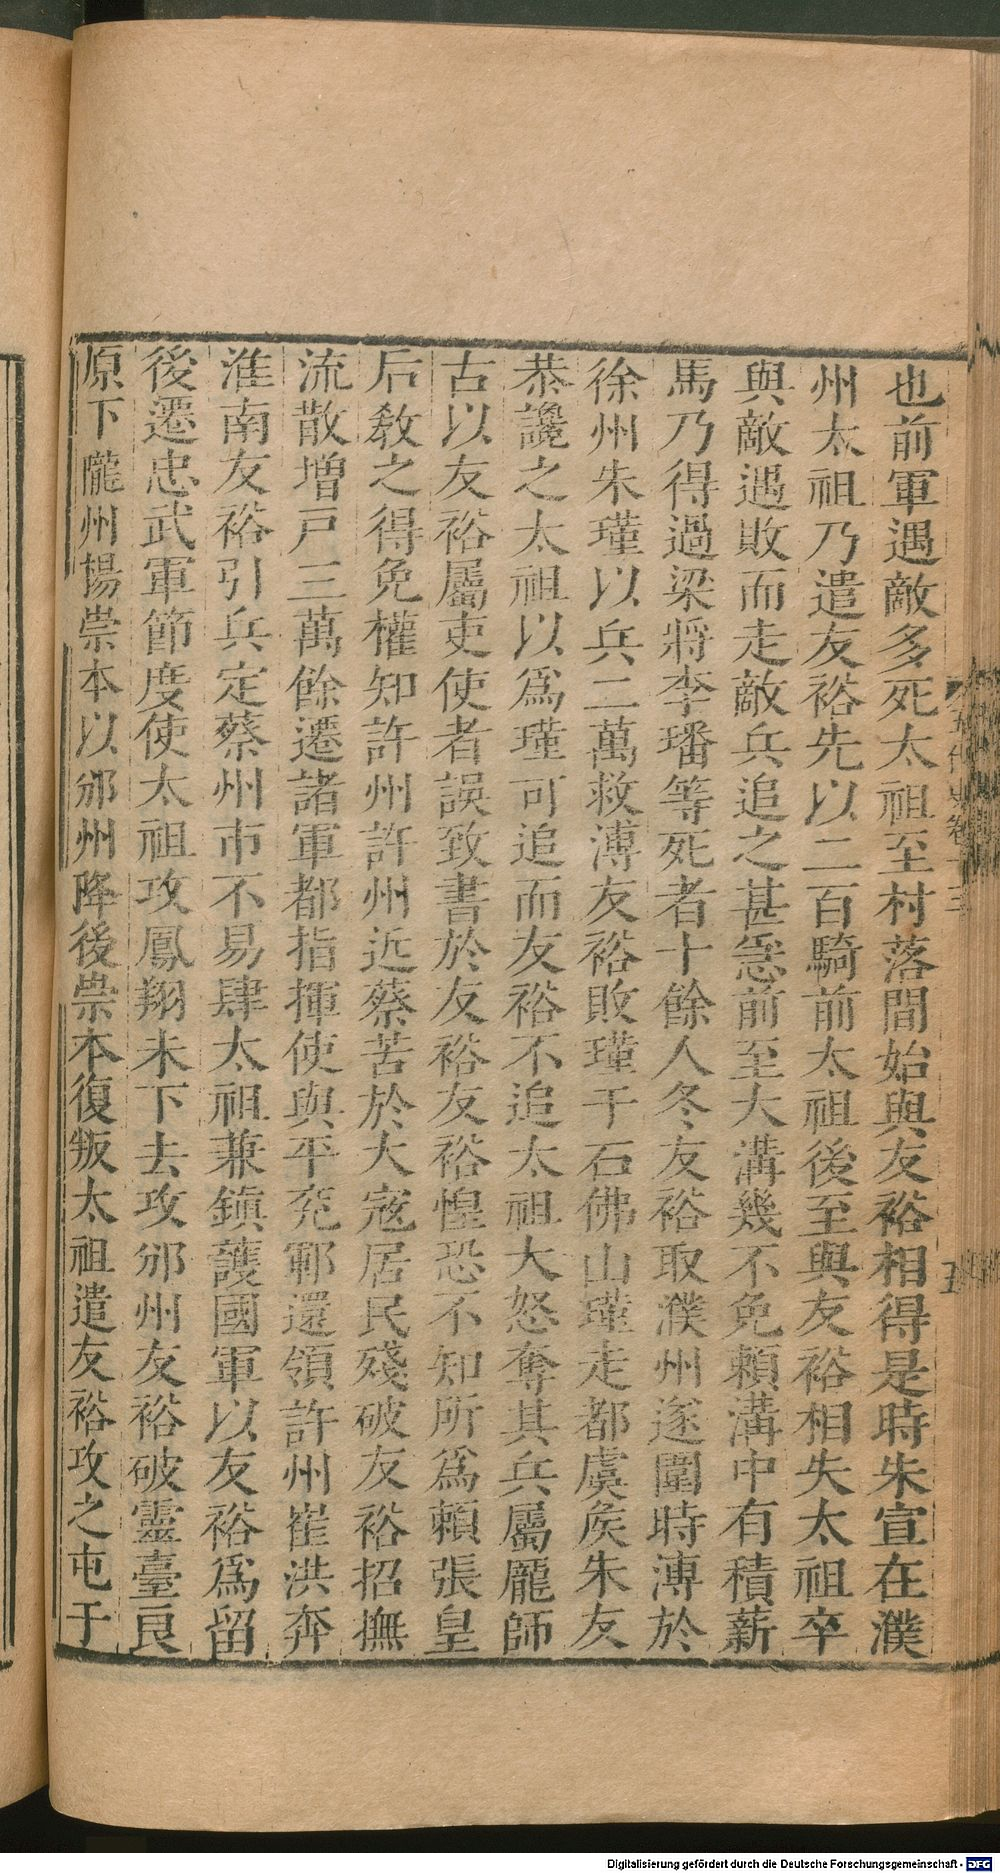 也前軍遇敵多死太祖至村落間始與友裕相得是時朱宣在濮
州太祖乃遣友裕先以二百騎前太祖後至與友裕相失太祖卒
與敵遇敗而走敵兵追之甚急前至大溝幾不免賴溝中有積薪
馬乃得過梁將李璠等死者十餘人冬友裕取濮州遂圍時溥於
徐州朱瑾以兵二萬救溥友裕敗瑾于石佛山瑾走都虞侯朱友
恭讒之太祖以爲瑾可追而友裕不追太祖大怒奪其兵屬龐師
古以友裕屬吏使者誤致書於友裕友裕惶恐不知所爲賴張皇
后敎之得免權知許州許州近蔡苦於大寇居民殘破友裕招撫
流散增戸三萬餘遷諸軍都指揮使與平兖鄆還領許州崔洪奔
淮南友裕引兵定蔡州市不易肆太祖兼鎮護國軍以友裕爲留
後遷忠武軍節度使太祖攻鳳翔未下去攻邠州友裕破靈臺良
原下隴州楊崇本以邠州降後崇本復叛太祖遣友裕攻之屯于
五代史卷十三
五
Digitalisierung gefördert durch die Deutsche Forschungsgemeinschaft - DFG